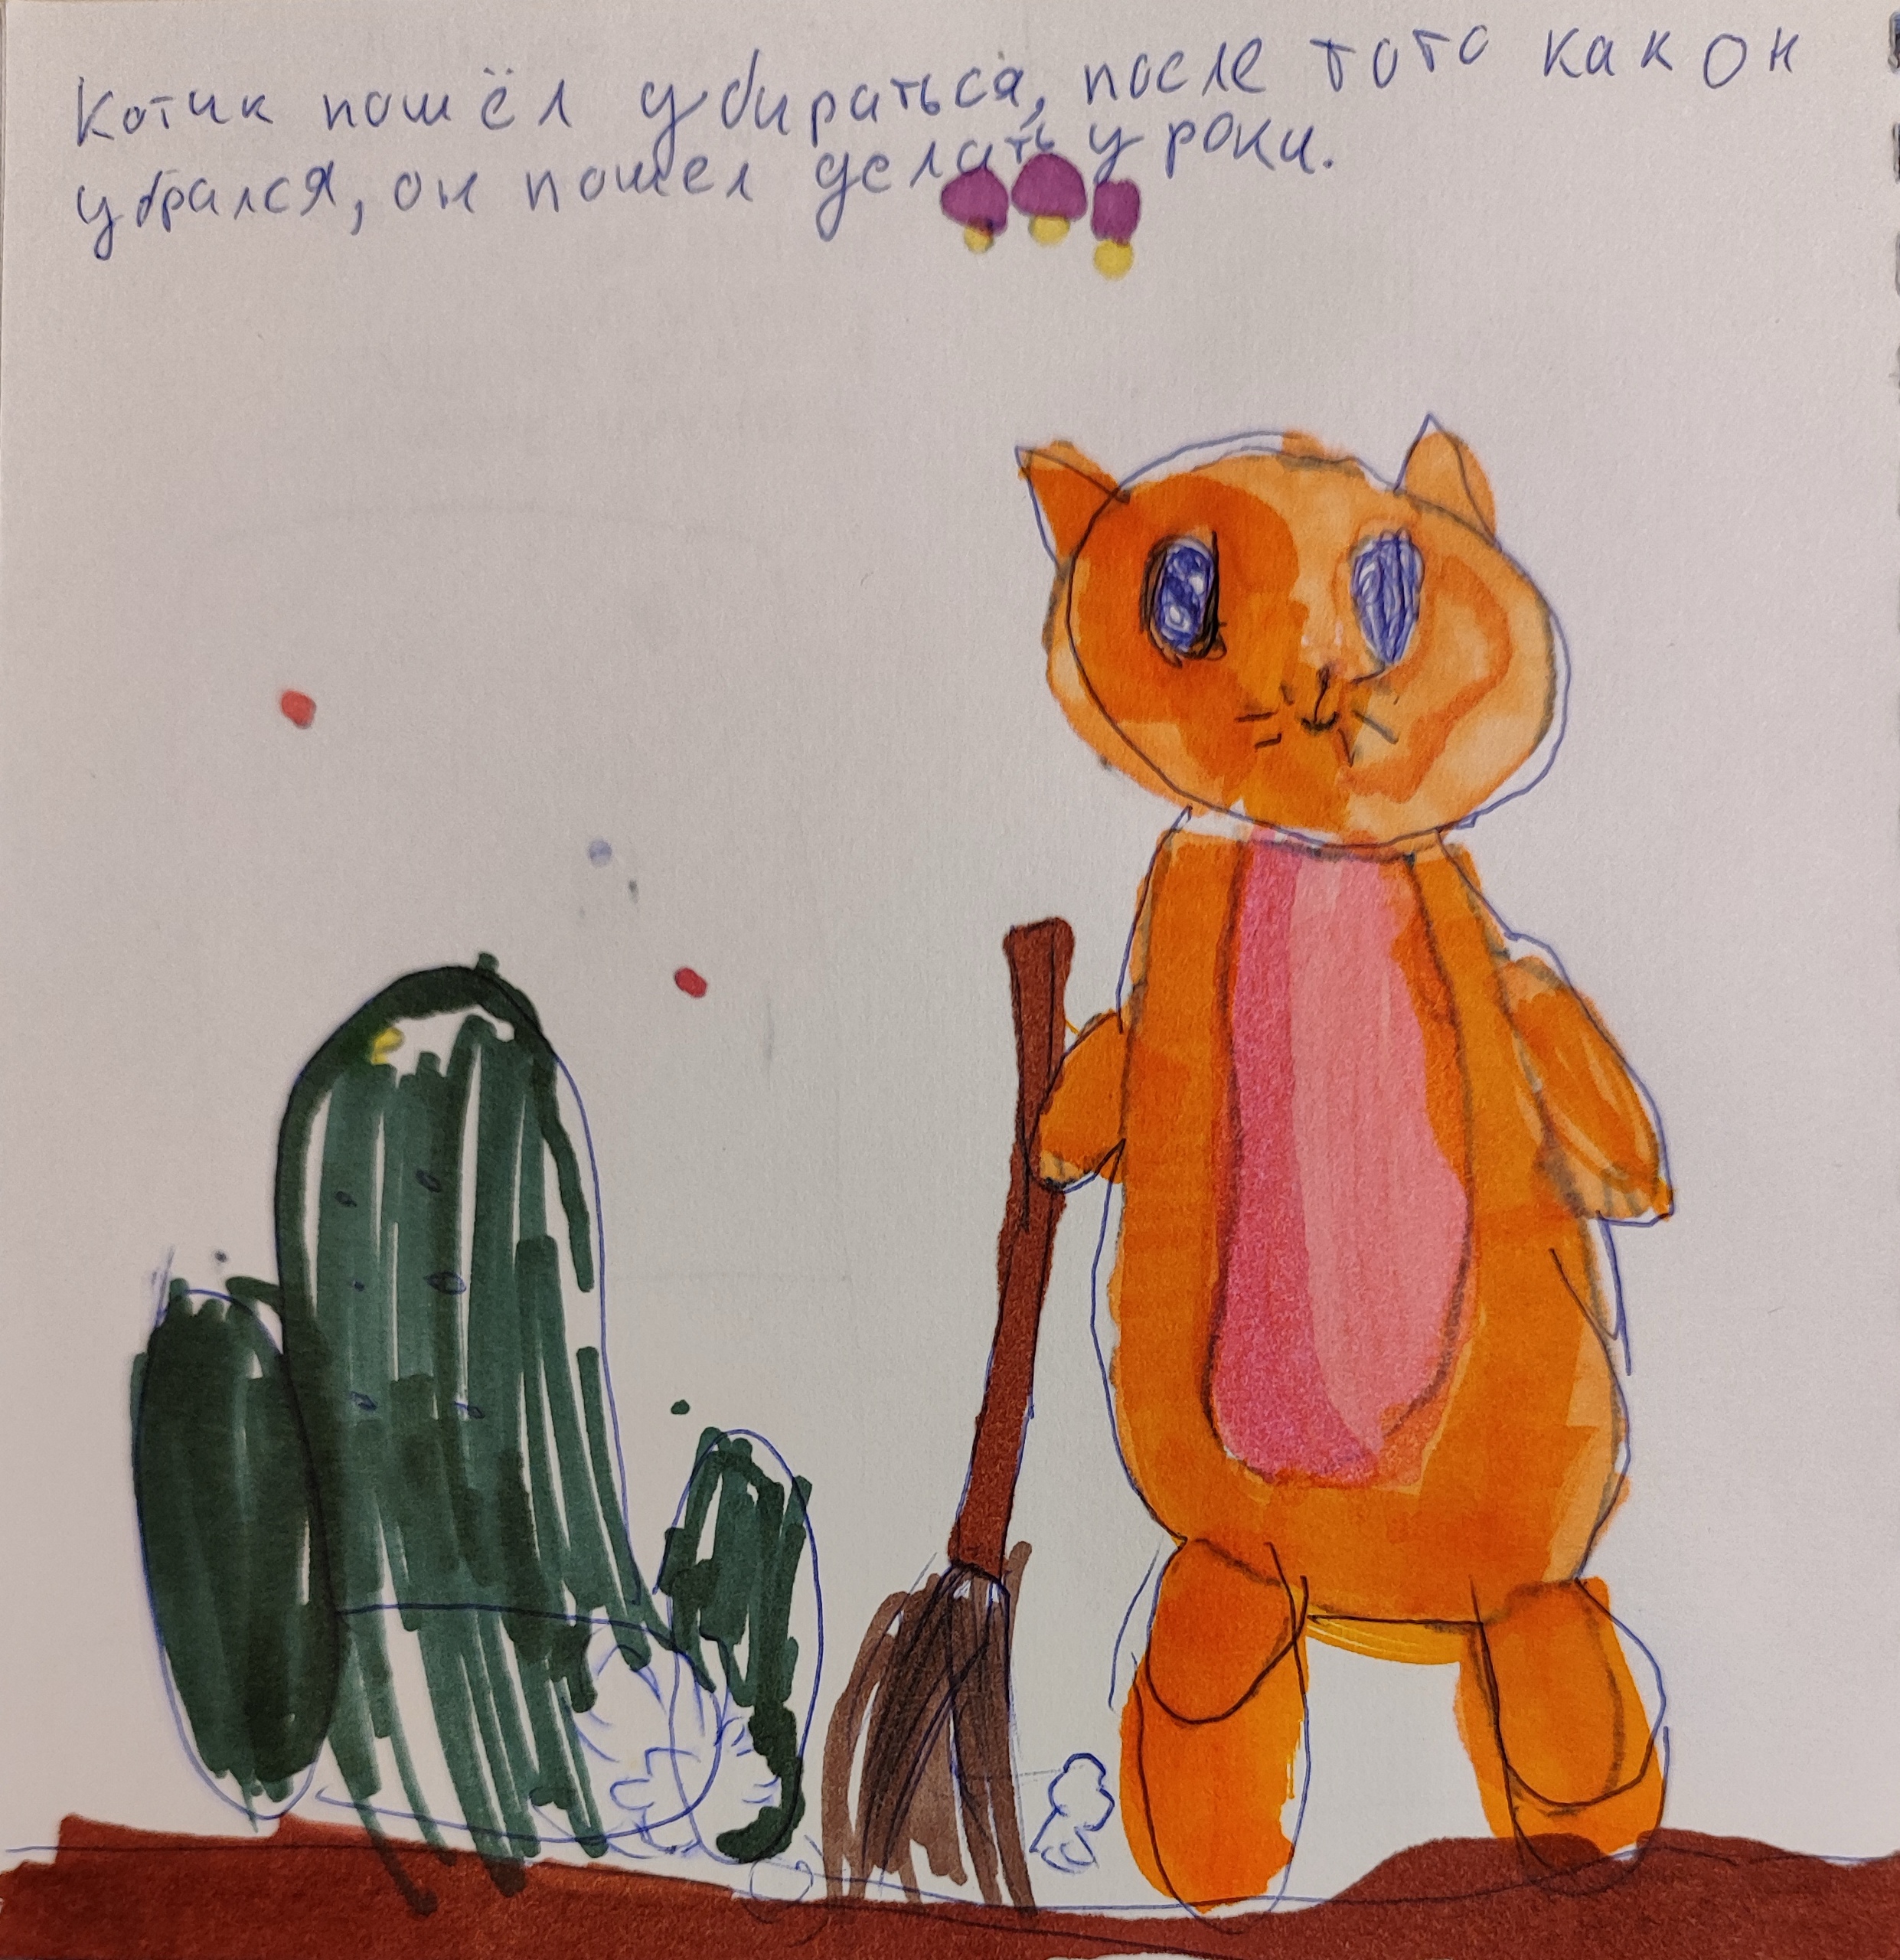 Котик пошёл убираться, после того как он
убрался, он пошел делать уроки.